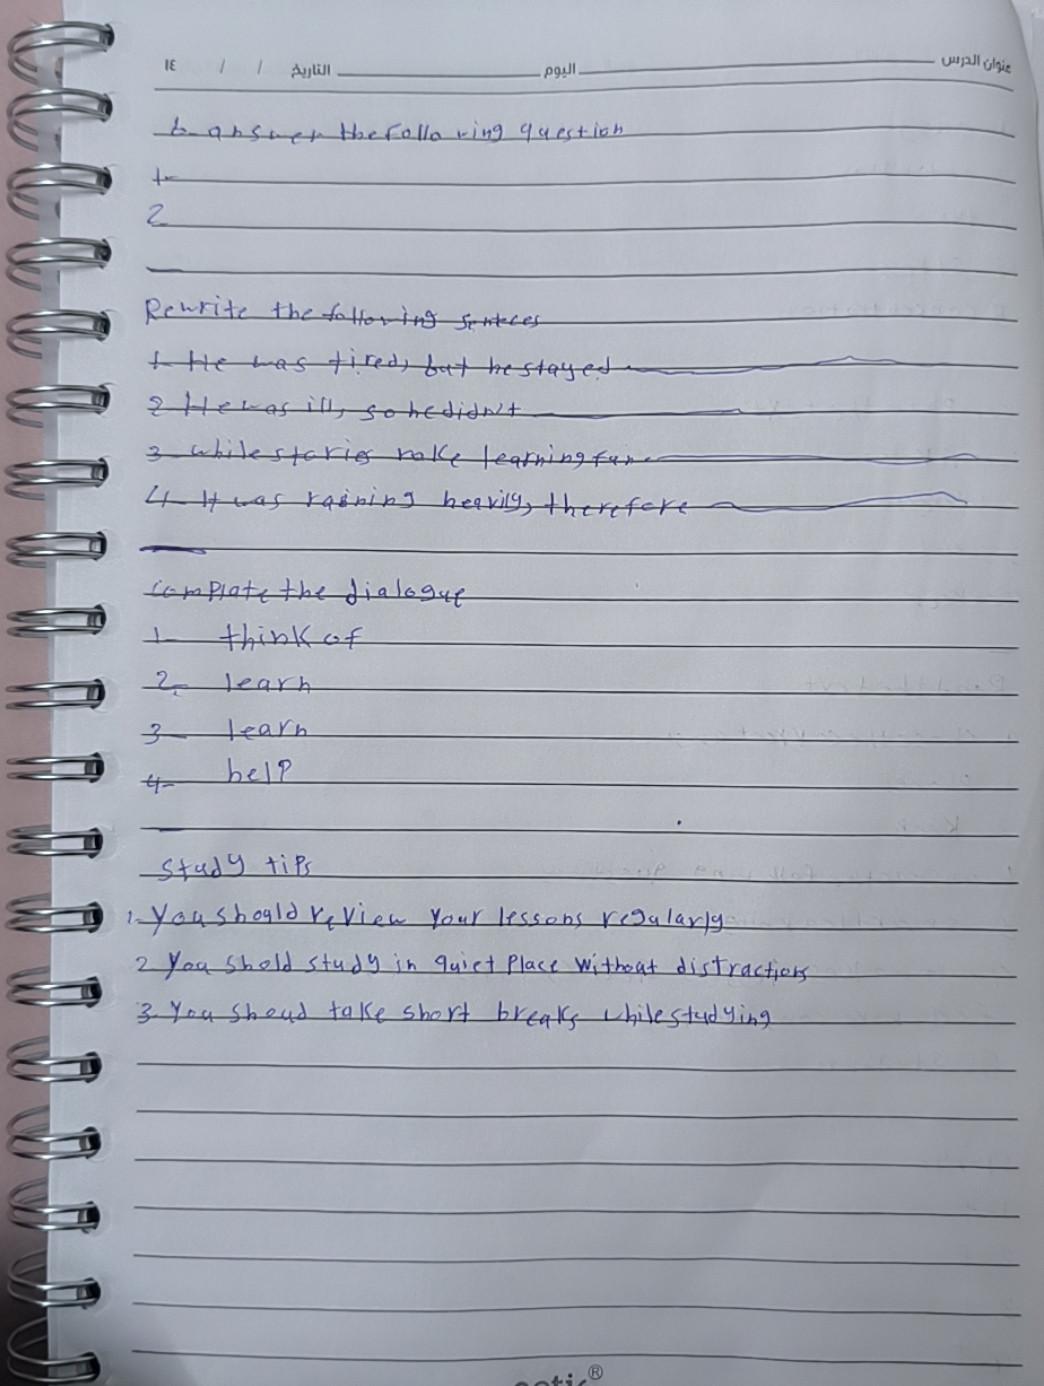 عنوان الدرس اليوم التاريخ / / ١٤
b- answer the follo wing question
1-
2
Rewrite the following senteces
1- He was tired, but he stayed
2 He was ill, so he didn't
3- while stories make learning fun
4- It was raining heavily, therefore
complate the dialogue
1- think of
2- learn
3- learn
4- help
study tips
1- You shoald review your lessons regularly
2 You shold study in quiet place without distractions
3- You shoud take short breaks while studying